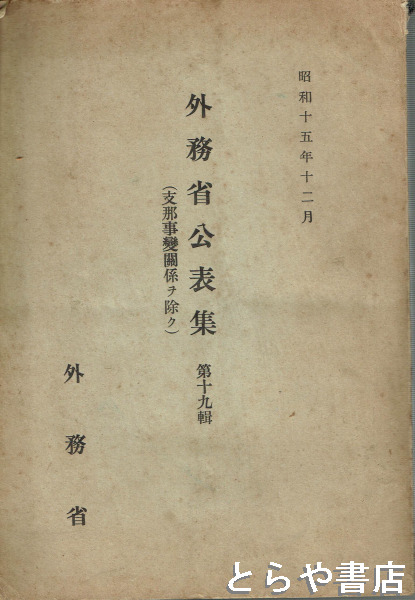 昭和十五年十二月
外務省公表集 第十九輯
(支那事變關係ヲ除ク)
外務省
とらや書店